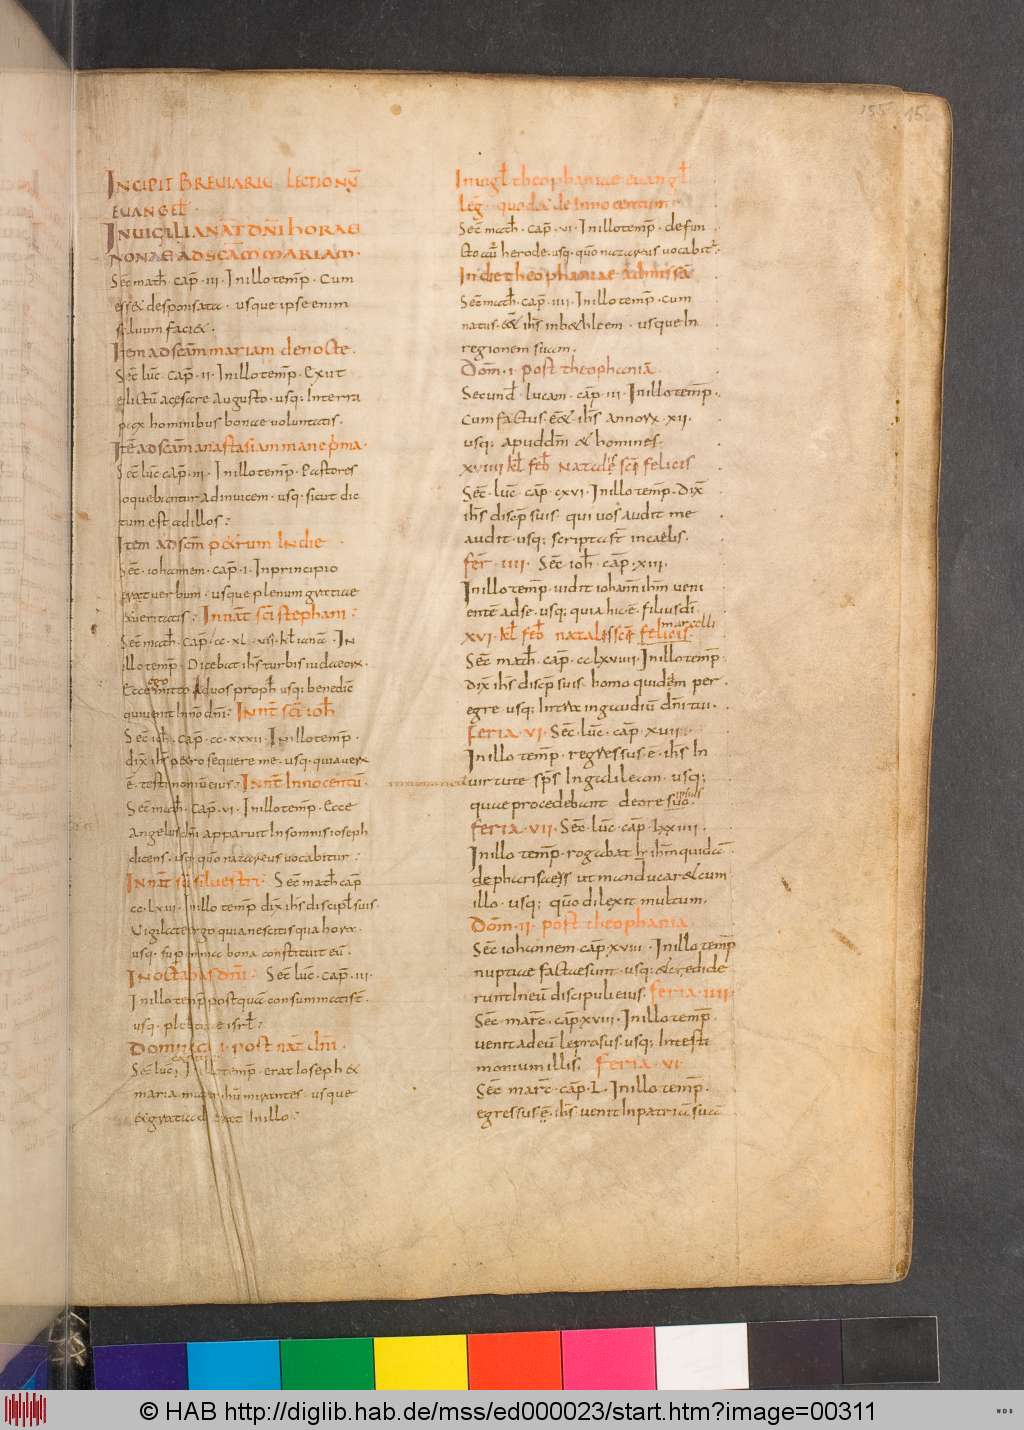 155 15
INCIPIT BREVIARIU LECTIONŪ
EUANGEL̄
IN UIGILIA NAT̄ DN̄I HORA
NONA AD SC̄AM MARIAM
Sec̄ math̄ cap̄ III In illo temp̄ Cum
esset desponsata usque ipse enim
saluum faciet
Item ad sc̄am mariam de nocte
Sec̄ luc̄ cap̄ II In illo temp̄ Exiit
edictū a cesare augusto usq; In terra
pax hominibus bonae voluntatis
Itē ad sc̄am anastasiam mane p̄ma
Sec̄ luc̄ cap̄ III In illo temp̄ Pastores
loquebantur ad inuicem usq; sicut dic
tum est ad illos
Item ad sc̄m petrum In die
Sec̄ iohannem cap̄ I In principio
erat uerbum usque plenum gratiae
et ueritatis In nat̄ sc̄i stephani
Sec̄ math̄ cap̄ cc xl VII kl̄ ianr̄ In
illo temp̄ Dicebat ih̄s turbis iudaeorx
Ecce ego mitto ad uos proph̄ usq; benedic̄
qui uenit In nō dn̄i In nat̄ sc̄i ioh̄
Sec̄ ioh̄ cap̄ cc xxxii In illo temp̄
dix̄ ih̄s petro sequere me usq; quia uerx
ē testimoniū eius In nat̄ Innocentū
Sec̄ math̄ cap̄ VI In illo temp̄ Ecce
angelus dn̄i apparuit In somnis ioseph
dicens usq; quō nazareus uocabitur
In nat̄ sc̄i siluestri Sec̄ math̄ cap̄
cc lxiii In illo temp̄ dix̄ ih̄s discipl̄ suis
Uigilate ergo quia nescitis qua hora
usq; supr omnia bona constituit eū
In octabas dn̄i Sec̄ luc̄ cap̄ III
In illo temp̄ postquā consummati st̄
usq; isrl̄
Dominica I post nat̄ dn̄i
Sec̄ luc̄ In illo temp̄ erat Ioseph et
maria mater ihū mirantes usque
et gratia dī erat In illo
In uigl̄ theophaniae euangl̄
leḡ quod ē de Innocentum
Sec̄ math̄ cap̄ VI In illo temp̄ defun
cto aū herode usq; quō nazareus uocabit̄
In die theophaniae ad missā
Sec̄ math̄ cap̄ IIII In illo temp̄ cum
natus eēt ih̄s in bethleem usque In
regionem suam
Dom̄ I post theophaniā
Secund̄ lucam cap̄ III In illo temp̄
Cum factus eēt ih̄s annorx XII
usq; apud dm̄ et homines
XVIIII kl̄ feb̄ Natale sc̄i felicis
Sec̄ luc̄ cap̄ cxvi In illo temp̄ dix̄
ih̄s discip̄ suis qui uos audit me
audit usq; scripta st̄ in caelis
fer̄ IIII Sec̄ ioh̄ cap̄ XIII
In illo temp̄ uidit iohann̄ ihm̄ ueni
entē ad se usq; quia hic ē filius dī
XVI kl̄ feb̄ natale sc̄i felicis marcelli
Sec̄ math̄ cap̄ cclxviiii In illo temp̄
dix̄ ih̄s discip̄ suis homo quidem per
egre usq; Intra in gaudiū dn̄i tui
Feria VI Sec̄ luc̄ cap̄ XVII
In illo temp̄ regressus ē ih̄s In
uirtute sp̄s In galileam usq;
quae procedebant de ore suo ipsius
feria VII Sec̄ luc̄ cap̄ lxxiiii
In illo temp̄ rogabat ihm̄ quidā
de pharisaeis ut manducaret cum
illo usq; quō dilexit multum
Dom̄ II post theophania
Sec̄ iohannem cap̄ XVIII In illo temp̄
nuptiae factae sunt usq; et credide
runt In eū discipuli eius feria IIII
Sec̄ marc̄ cap̄ XVIII In illo temp̄
uenit ad eū leprosus usq; In testi
monium illis Feria VI
Sec̄ marc̄ cap̄ L In illo temp̄
egressus ē ih̄s uenit In patriā suā
© HAB http://diglib.hab.de/mss/ed000023/start.htm?image=00311